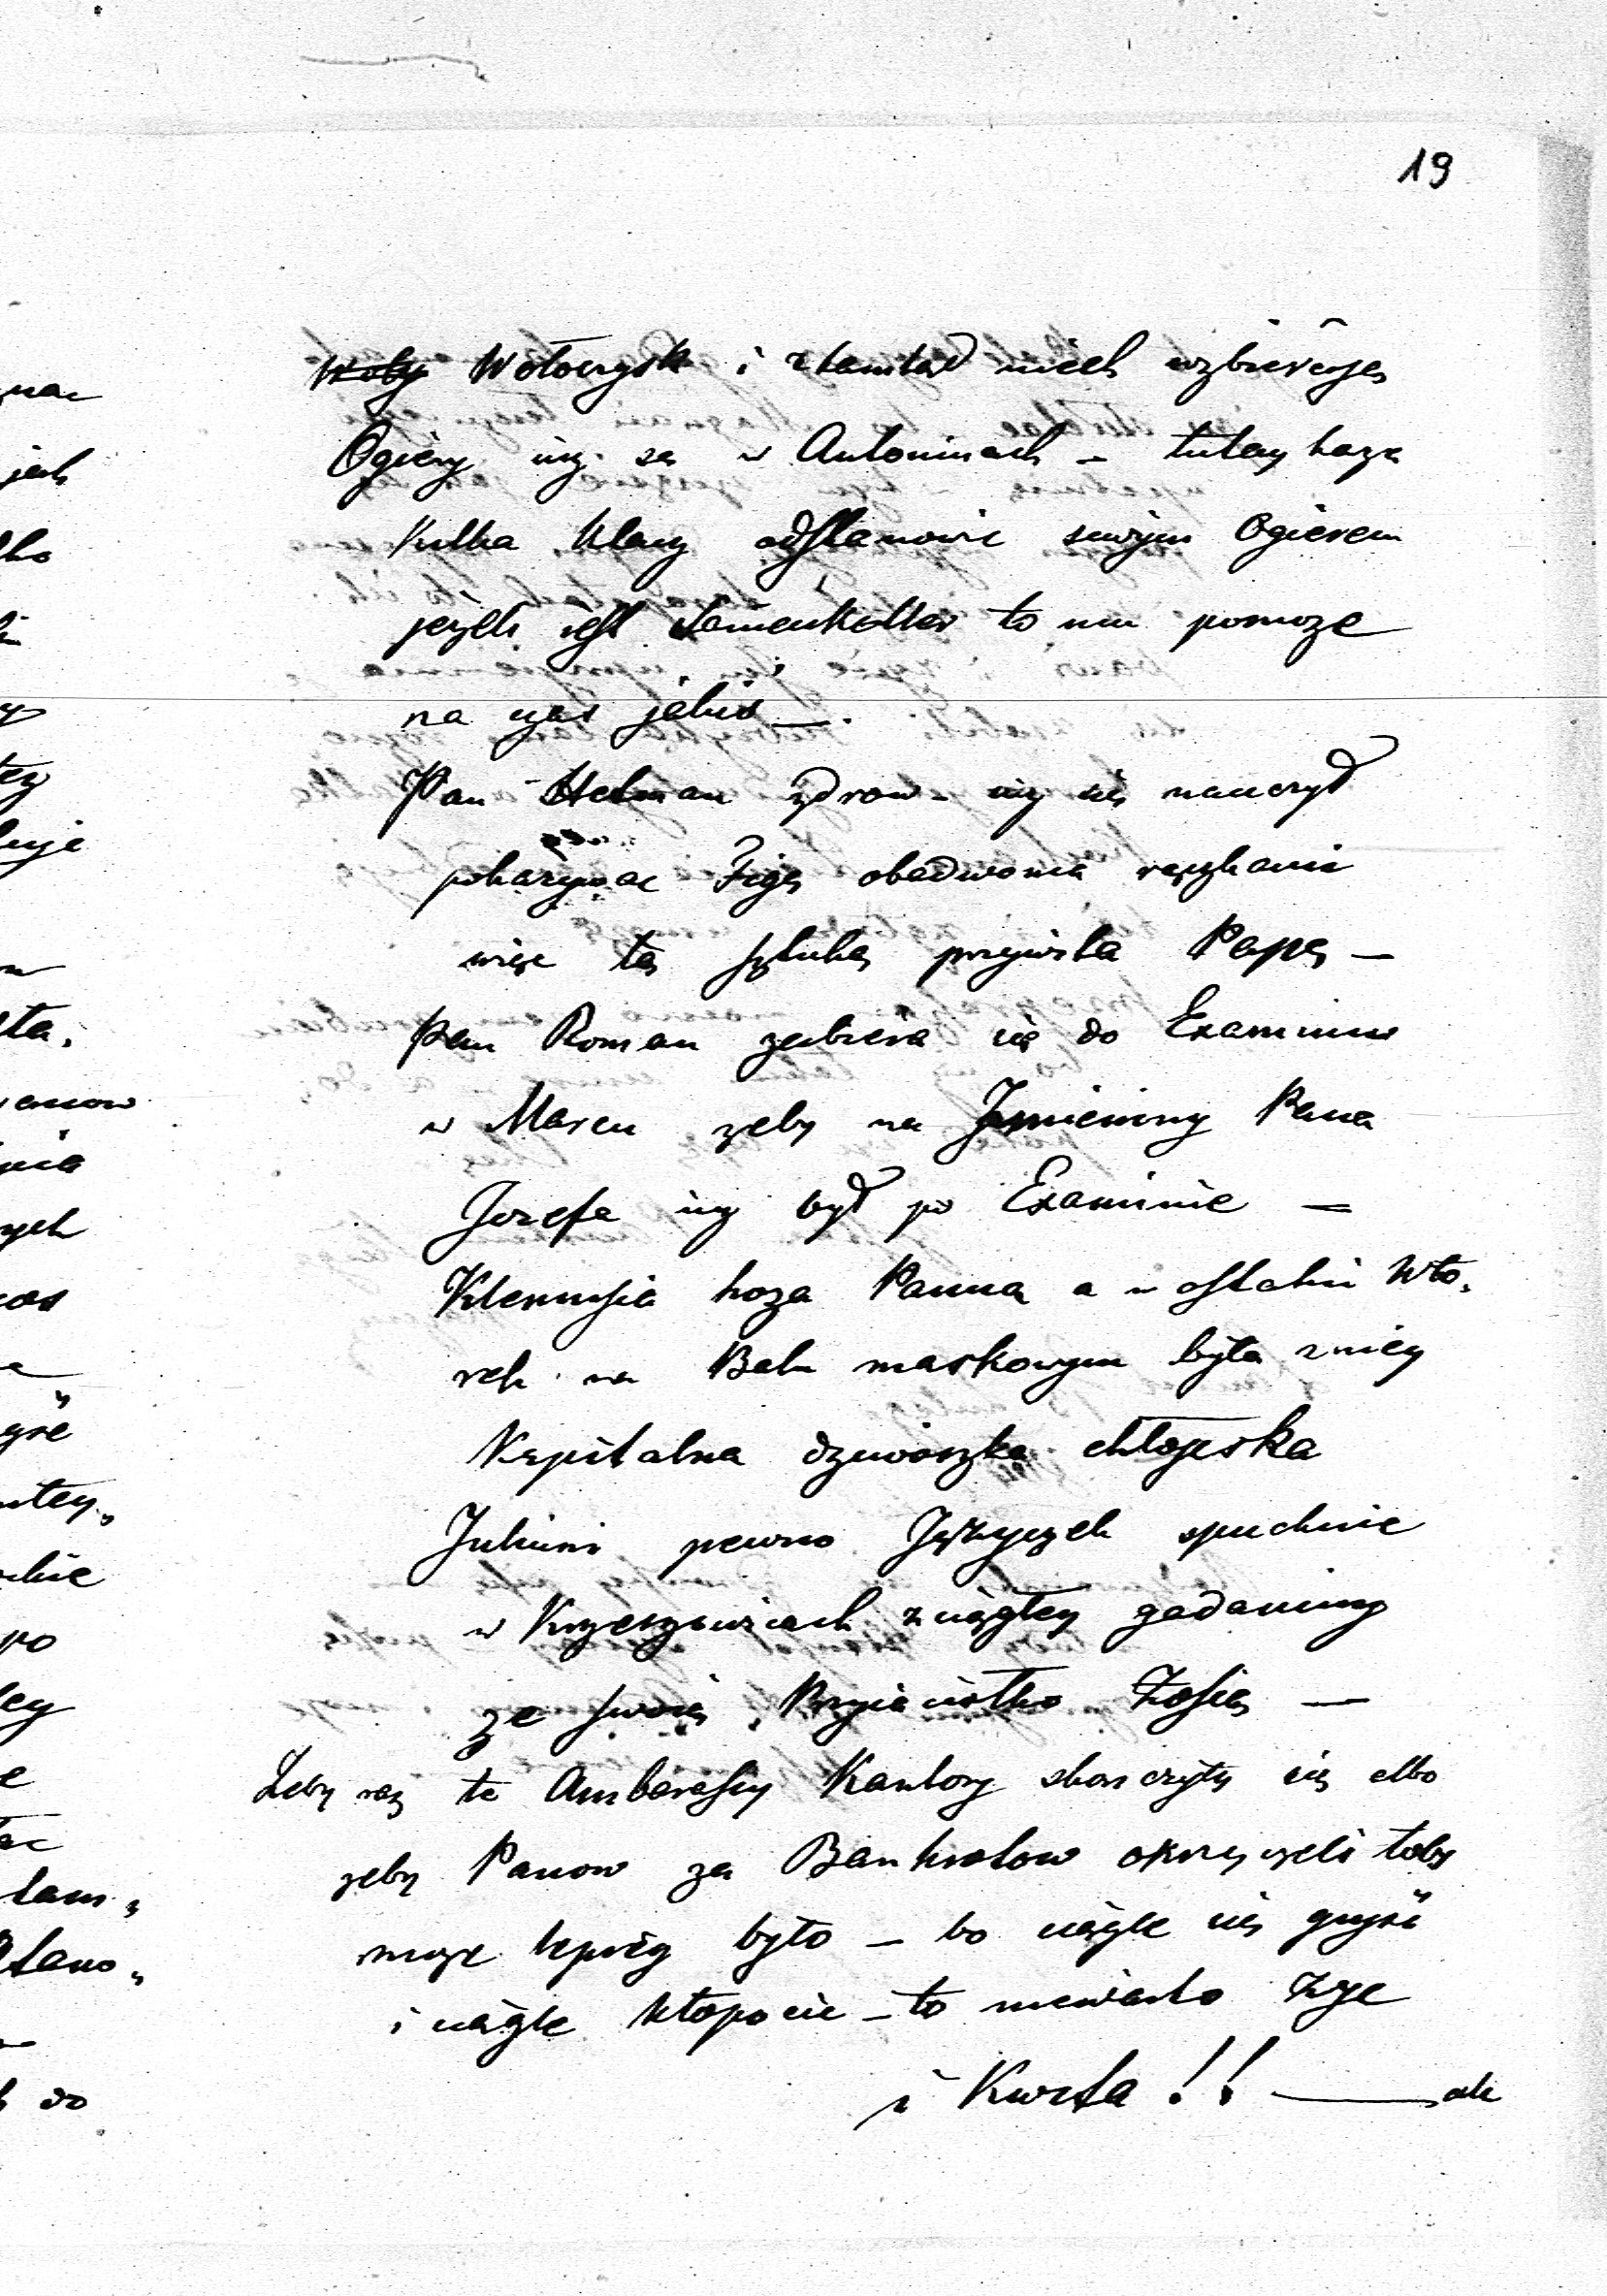 19
Wołoczysk i ztamtąd niech wzbieraią
Ogiery iuż są w Antoninach – tutey każę
kilka klaczy odstanowić swoym Ogierem
jeżeli iest to mu pomoże
na czas jakiś —.
Pan Hetman zdrow – iuż się nauczył
pokazywac Figę obadwoma rączkami
więc tą sztuką przywita Papę —
Pan Roman zabiera się do Examinu
w Marcu zeby na Jmieniny Pana
Jozefa iuż był po Examinie =
Klemusia hoza Panna a w ostatni Wto„
rek na Balu maskowym była z niey
Kapitalna dziwoszka chłopska
Julisia pewno Języczek spuchnie
w Krzeszowicach z ciągłey gadaniny
ze swoią Przyiaciołko Zosią —
Zeby raz te Ambarasy Kantory skonczyły się albo
zeby Panow za Bankrotow okrzyczeli toby
moze lepiey było – bo ciągle się gryść
i ciągle kłopocic – to niewarto zyc
i Kwita !! — ale